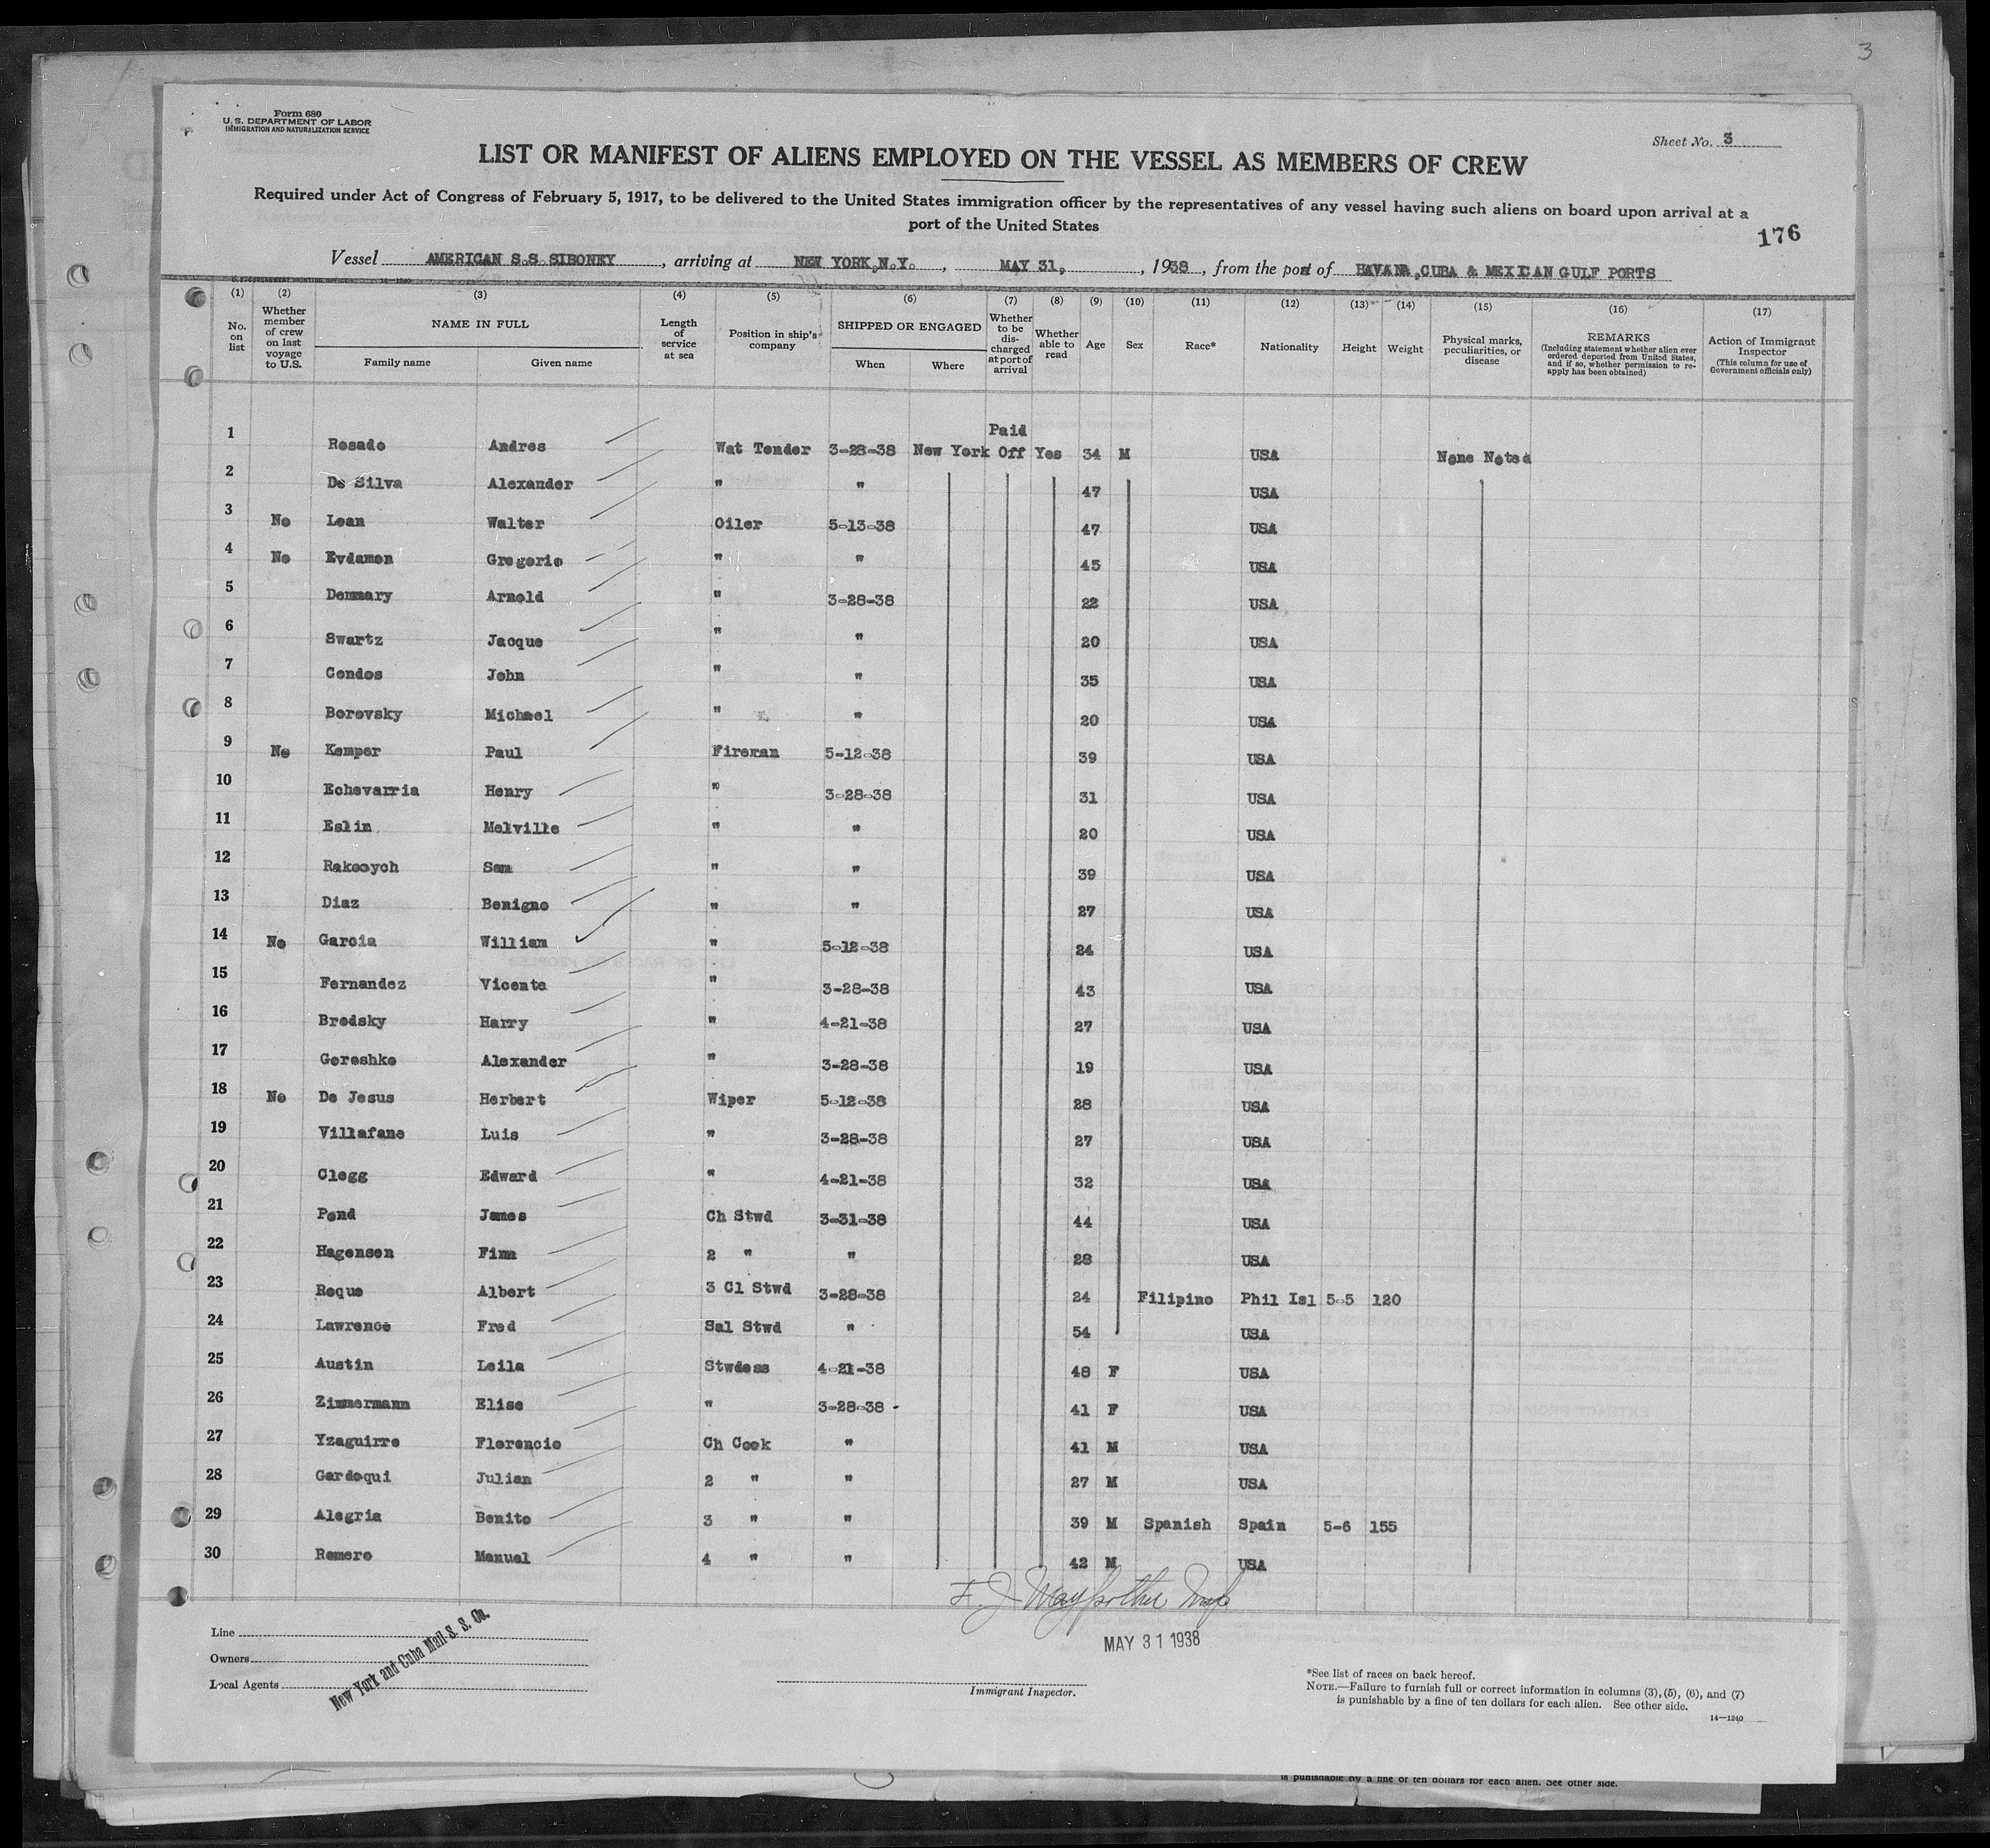 3
Form 680
U. S. DEPARTMENT OF LABOR
IMMIGRATION AND NATURALIZATION SERVICE
Sheet No. 3
LIST OR MANIFEST OF ALIENS EMPLOYED ON THE VESSEL AS MEMBERS OF CREW
Required under Act of Congress of February 5, 1917, to be delivered to the United States immigration officer by the representatives of any vessel having such aliens on board upon arrival at a
port of the United States
176
Vessel AMERICAN S.S. SIBONEY, arriving at NEW YORK,N.Y., MAY 31, 1938, from the port of HAVANA,CUBA & MEXICAN GULF PORTS
(1) (2) (3) (4) (5) (6) (7) (8) (9) (10) (11) (12) (13) (14) (15) (16) (17)
No. on list
Whether member of crew on last voyage to U.S.
NAME IN FULL
Family name Given name
Length of service at sea
Position in ship's company
SHIPPED OR ENGAGED
When Where
Whether to be discharged at port of arrival
Whether able to read
Age Sex Race* Nationality Height Weight
Physical marks, peculiarities, or disease
REMARKS
(Including statement whether alien ever ordered deported from United States, and if so, whether permission to reapply has been obtained)
Action of Immigrant Inspector
(This column for use of Government officials only)
1 Rosado Andres Wat Tender 3-28-38 New York Paid Off Yes 34 M USA None Noted
2 De Silva Alexander " " 47 USA
3 No Lean Walter Oiler 5-13-38 47 USA
4 No Evdamon Gregorio " " 45 USA
5 Demmary Arnold " 3-28-38 22 USA
6 Swartz Jacque " " 20 USA
7 Condos John " " 35 USA
8 Borovsky Michael " " 20 USA
9 No Kemper Paul Fireman 5-12-38 39 USA
10 Echevarria Henry " 3-28-38 31 USA
11 Eslin Melville " " 20 USA
12 Rakocych Sam " " 39 USA
13 Diaz Benigno " " 27 USA
14 No Garcia William " 5-12-38 24 USA
15 Fernandez Vicente " 3-28-38 43 USA
16 Brodsky Harry " 4-21-38 27 USA
17 Goroshko Alexander " 3-28-38 19 USA
18 No De Jesus Herbert Wiper 5-12-38 28 USA
19 Villafane Luis " 3-28-38 27 USA
20 Clegg Edward " 4-21-38 32 USA
21 Pond James Ch Stwd 3-31-38 44 USA
22 Hagensen Finn 2 " " 28 USA
23 Roque Albert 3 Cl Stwd 3-28-38 24 Filipino Phil Isl 5-5 120
24 Lawrence Fred Sal Stwd " 54 USA
25 Austin Leila Stwdess 4-21-38 48 F USA
26 Zimmermann Elise " 3-28-38 41 F USA
27 Yzaguirre Florencio Ch Cook " 41 M USA
28 Gardoqui Julian 2 " " 27 M USA
29 Alegria Benito 3 " " 39 M Spanish Spain 5-6 155
30 Romero Manuel 4 " " 42 M USA
F. J.
Line
Owners
Local Agents
New York and Cuba Mail S. S. Co.
MAY 31 1938
Immigrant Inspector.
*See list of races on back hereof.
NOTE.—Failure to furnish full or correct information in columns (3), (5), (6), and (7)
is punishable by a fine of ten dollars for each alien. See other side.
14—1240
is punishable by a fine of ten dollars for each alien. See other side.